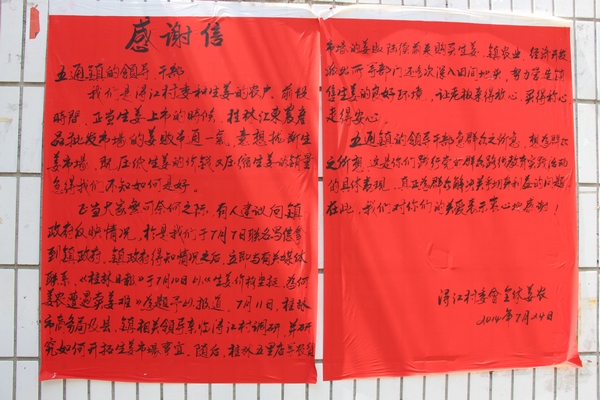 感谢信
五通镇的领导干部
我们是浔江村委种生姜的农户。前段
时间，正当生姜上市的时候，桂林江东农产
品批发市场的姜贩串通一气，意想垄断生
姜市场，既压低生姜的价钱又压缩生姜的销量
急得我们不知如何是好。
正当大家无可奈何之际，有人建议向镇
政府反映情况，于是我们于7月7日联名写信拿
到镇政府，镇政府得知情况之后，立即与有关媒体
联系，《桂林日报》于7月10日以《生姜价格坚挺，为何
姜农遭遇卖姜难》为题予以报道，7月11日，桂林
市商务局及县、镇相关领导亲临浔江村调研，并研
究如何开拓生姜市场事宜。随后，桂林五里店
市场的姜贩陆续前来购买生姜，镇农业、经济开发
派出所等部门还多次深入田间地头，努力营造销
售生姜的良好环境，让老板来得放心，买得称心
走得安心。
五通镇的领导干部急群众之所急，想群众
之所想，这是你们践行党的群众路线教育实践活动
的具体表现，真正为群众解决关乎切身利益的问题。
在此，我们对你们的关爱表示衷心地感谢！
浔江村委会全体姜农
2014年7月24日